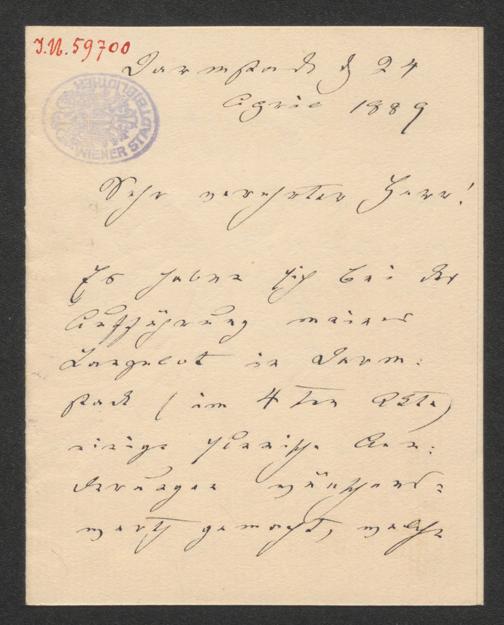 J.N. 59700
WIENER STADTBIBLIOTHEK
Darmstadt d 24
April 1889
Sehr verehrter Herr!
Es haben sich bei der
Aufführung meines
Langelot in Darm:
stadt (im 4ten Akte)
einige scenische Aen:
derungen wünschens:
werth gemacht, welche